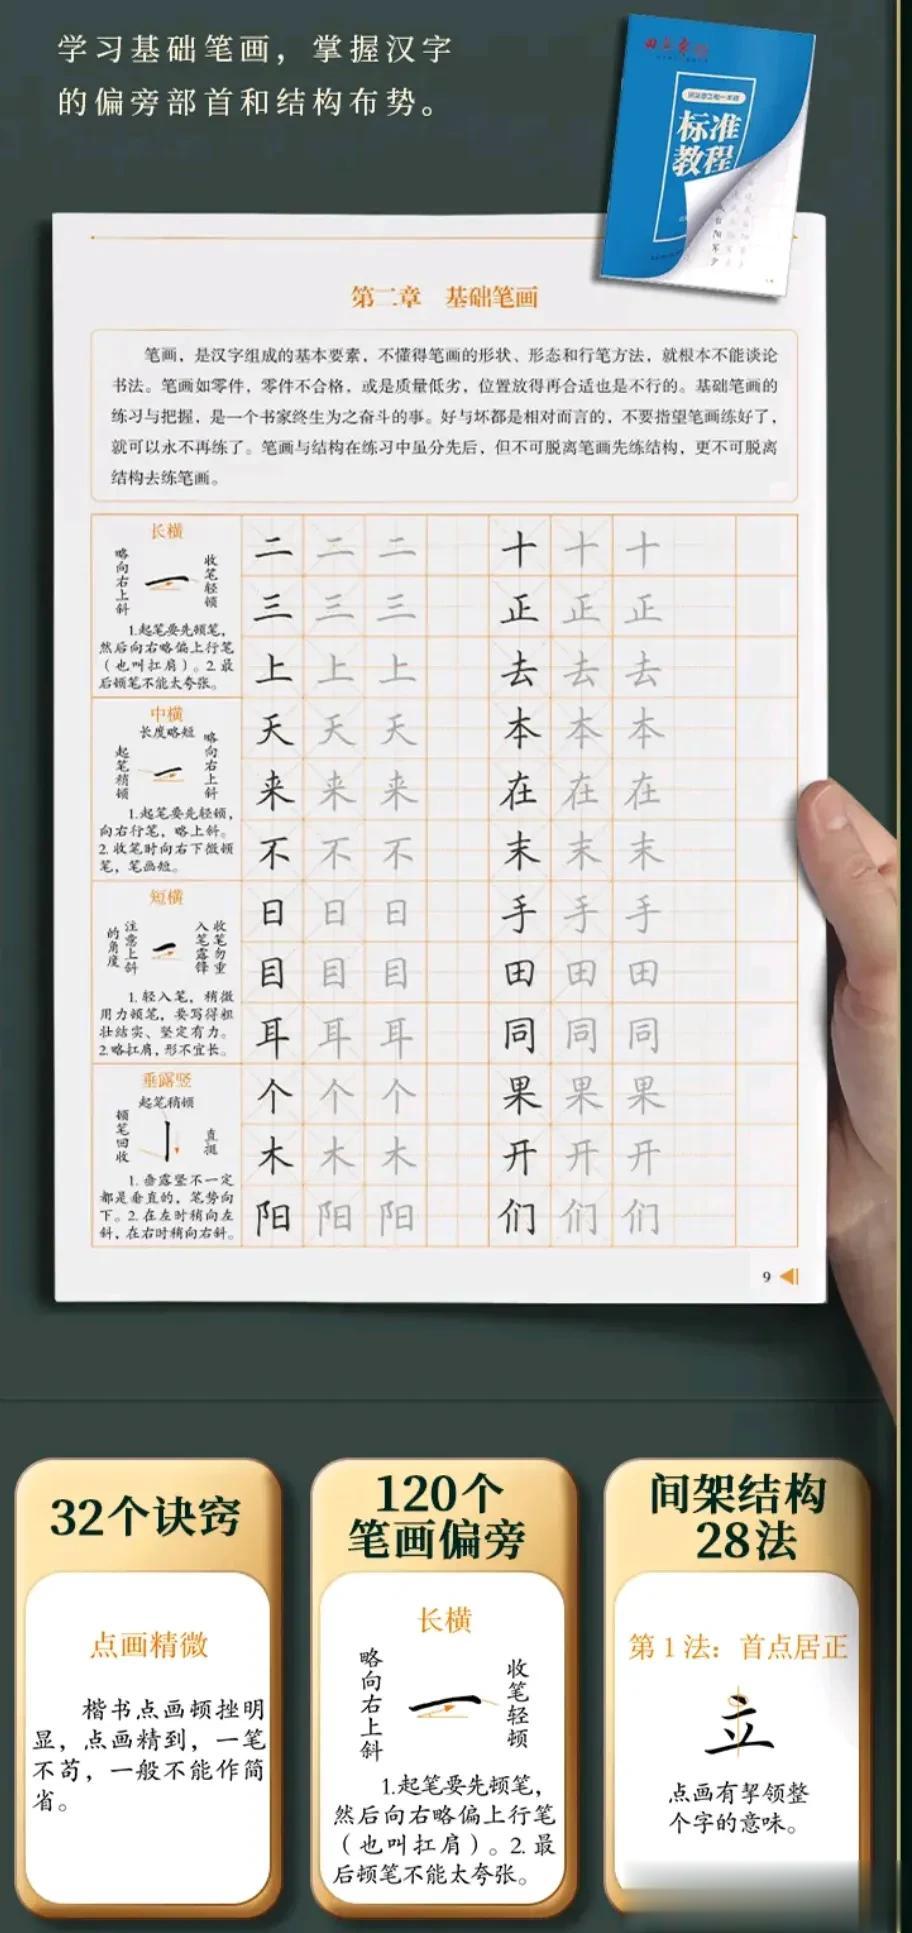 学习基础笔画，掌握汉字
的偏旁部首和结构布势。
标准
教程
第二章 基础笔画
笔画，是汉字组成的基本要素，不懂得笔画的形状、形态和行笔方法，就根本不能谈论
书法。笔画如零件，零件不合格，或是质量低劣，位置放得再合适也是不行的。基础笔画的
练习与把握，是一个书家终生为之奋斗的事。好与坏都是相对而言的，不要指望笔画练好了，
就可以永不再练了。笔画与结构在练习中虽分先后，但不可脱离笔画先练结构，更不可脱离
结构去练笔画。
长横
略向右上斜
收笔轻顿
1.起笔要先顿笔，
然后向右略偏上行笔
（也叫扛肩）。2.最
后顿笔不能太夸张。
二 二 二 十 十 十
三 三 三 正 正 正
上 上 上 去 去 去
中横
长度略短
起笔稍顿
略向右上斜
1.起笔要先轻顿，
向右行笔，略上斜。
2.收笔时向右下微顿
笔，笔画短。
天 天 天 本 本 本
来 来 来 在 在 在
不 不 不 末 末 末
短横
注意上斜
的角度
收笔勿重
入笔露锋
1.轻入笔，稍微
用力顿笔，要写得粗
壮结实、坚定有力。
2.略扛肩，形不宜长。
日 日 日 手 手 手
目 目 目 田 田 田
耳 耳 耳 同 同 同
垂露竖
起笔稍顿
顿笔回收
直挺
1.垂露竖不一定
都是垂直的，笔势向
下。2.在左时稍向左
斜，在右时稍向右斜。
个 个 个 果 果 果
木 木 木 开 开 开
阳 阳 阳 们 们 们
9
32个诀窍
点画精微
楷书点画顿挫明
显，点画精到，一笔
不苟，一般不能作简
省。
120个
笔画偏旁
长横
略向右上斜
收笔轻顿
1.起笔要先顿笔，
然后向右略偏上行笔
（也叫扛肩）。2.最
后顿笔不能太夸张。
间架结构
28法
第1法：首点居正
立
点画有挈领整
个字的意味。